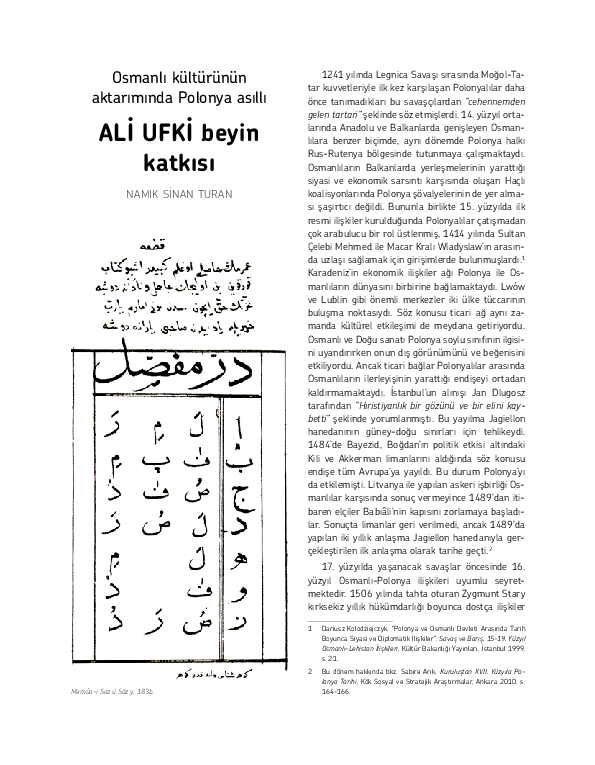 Osmanlı kültürünün
aktarımında Polonya asıllı
ALİ UFKİ beyin
katkısı
NAMIK SİNAN TURAN
قطعه
در مفصل
ا ل م ر
ب ف ب م
ج ص ف د
د ل ص ر
ه ل م
و ف د
ز ص ر د
Memûa-i Saz ü Söz y. 183b.
1241 yılında Legnica Savaşı sırasında Moğol-Ta-
tar kuvvetleriyle ilk kez karşılaşan Polonyalılar daha
önce tanımadıkları bu savaşçılardan "cehennemden
gelen tartarı" şeklinde söz etmişlerdi. 14. yüzyıl orta-
larında Anadolu ve Balkanlarda genişleyen Osman-
lılara benzer biçimde, aynı dönemde Polonya halkı
Rus-Rutenya bölgesinde tutunmaya çalışmaktaydı.
Osmanlıların Balkanlarda yerleşmelerinin yarattığı
siyasi ve ekonomik sarsıntı karşısında oluşan Haçlı
koalisyonlarında Polonya şövalyelerinin de yer alma-
sı şaşırtıcı değildi. Bununla birlikte 15. yüzyılda ilk
resmi ilişkiler kurulduğunda Polonyalılar çatışmadan
çok arabulucu bir rol üstlenmiş, 1414 yılında Sultan
Çelebi Mehmed ile Macar Kralı Wladyslaw'ın arasın-
da uzlaşı sağlamak için girişimlerde bulunmuşlardı.1
Karadeniz'in ekonomik ilişkiler ağı Polonya ile Os-
manlıların dünyasını birbirine bağlamaktaydı. Lwów
ve Lublin gibi önemli merkezler iki ülke tüccarının
buluşma noktasıydı. Söz konusu ticari ağ aynı za-
manda kültürel etkileşimi de meydana getiriyordu.
Osmanlı ve Doğu sanatı Polonya soylu sınıfının ilgisi-
ni uyandırırken onun dış görünümünü ve beğenisini
etkiliyordu. Ancak ticari bağlar Polonyalılar arasında
Osmanlıların ilerleyişinin yarattığı endişeyi ortadan
kaldırmamaktaydı. İstanbul'un alınışı Jan Dlugosz
tarafından "Hıristiyanlık bir gözünü ve bir elini kay-
betti" şeklinde yorumlanmıştı. Bu yayılma Jagiellon
hanedanının güney-doğu sınırları için tehlikeydi.
1484'de Bayezid, Boğdan'ın politik etkisi altındaki
Kili ve Akkerman limanlarını aldığında söz konusu
endişe tüm Avrupa'ya yayıldı. Bu durum Polonya'yı
da etkilemişti. Litvanya ile yapılan askeri işbirliği Os-
manlılar karşısında sonuç vermeyince 1489'dan iti-
baren elçiler Babıâli'nin kapısını zorlamaya başladı-
lar. Sonuçta limanlar geri verilmedi, ancak 1489'da
yapılan iki yıllık anlaşma Jagiellon hanedanıyla ger-
çekleştirilen ilk anlaşma olarak tarihe geçti.2
17. yüzyılda yaşanacak savaşlar öncesinde 16.
yüzyıl Osmanlı-Polonya ilişkileri uyumlu seyret-
mektedir. 1506 yılında tahta oturan Zygmunt Stary
kırksekiz yıllık hükümdarlığı boyunca dostça ilişkiler
1 Dariusz Kolodziejczyk, "Polonya ve Osmanlı Devleti Arasında Tarih
Boyunca Siyasi ve Diplomatik İlişkiler", Savaş ve Barış, 15-19. Yüzyıl
Osmanlı-Lehistan İlişkileri, Kültür Bakanlığı Yayınları, İstanbul 1999,
s. 21.
2 Bu dönem hakkında bkz. Sabire Arık, Kuruluştan XVII. Yüzyıla Po-
lonya Tarihi, Kök Sosyal ve Stratejik Araştırmalar, Ankara 2010, s.
164-166.